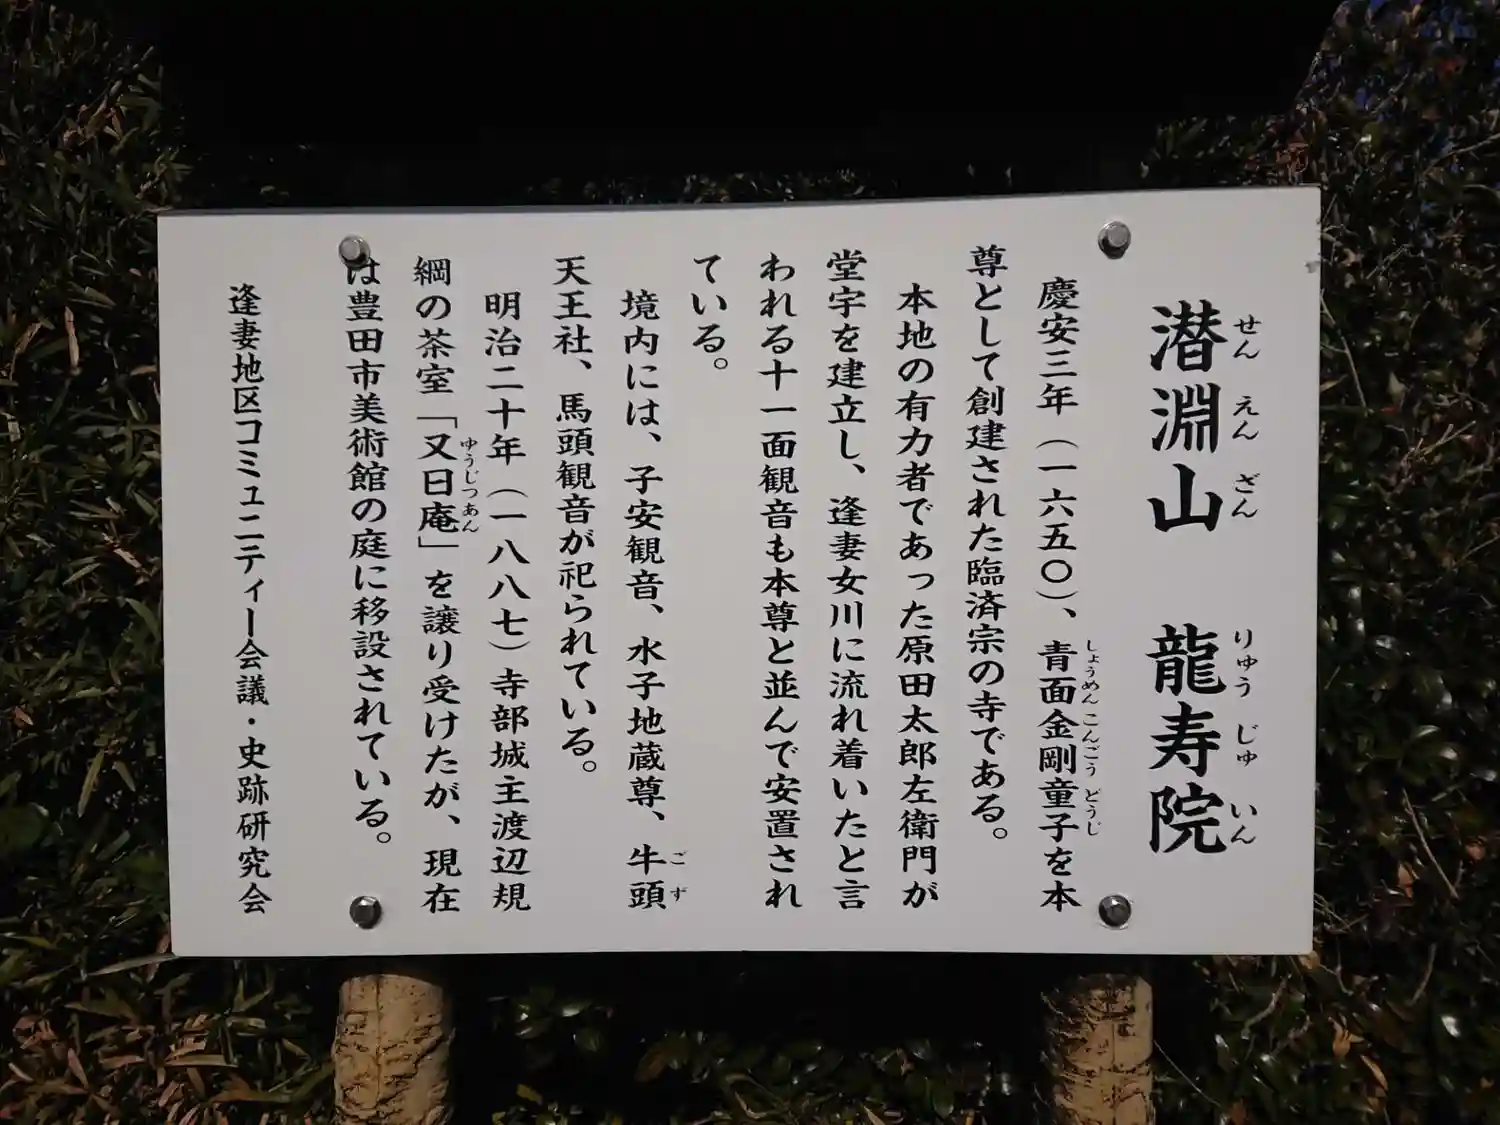 潜淵山 龍寿院
せん えん ざん りゅう じゅ いん
慶安三年（一六五〇）、青面金剛童子を本
しょうめん こんごう どうじ
尊として創建された臨済宗の寺である。
本地の有力者であった原田太郎左衛門が
堂宇を建立し、逢妻女川に流れ着いたと言
われる十一面観音も本尊と並んで安置され
ている。
境内には、子安観音、水子地蔵尊、牛頭
ごず
天王社、馬頭観音が祀られている。
明治二十年（一八八七）寺部城主渡辺規
綱の茶室「又日庵」を譲り受けたが、現在
ゆうじつあん
は豊田市美術館の庭に移設されている。
逢妻地区コミュニティー会議・史跡研究会